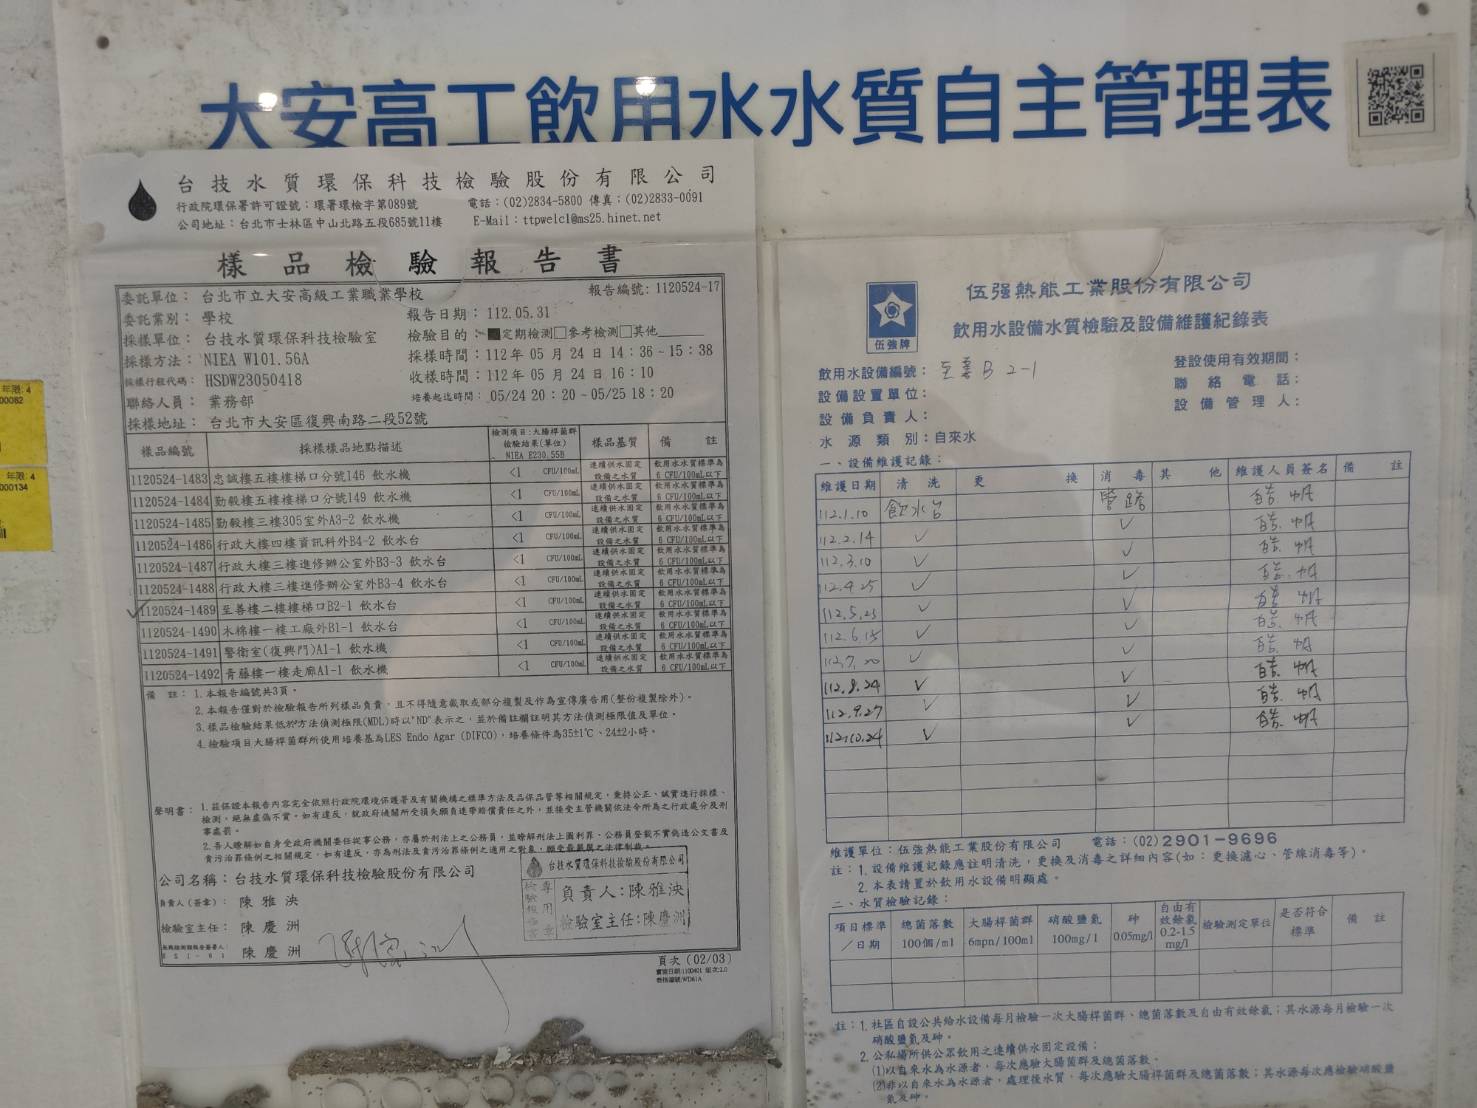 大安高工飲用水水質自主管理表
台技水質環保科技檢驗股份有限公司
行政院環保署許可證號：環署環檢字第089號
電話：(02)2834-5800 傳真：(02)2833-0091
公司地址：台北市士林區中山北路五段685號11樓
E-Mail：ttpwelcl@ms25.hinet.net
樣品檢驗報告書
委託單位：台北市立大安高級工業職業學校
報告編號：1120524-17
委託業別：學校
報告日期：112.05.31
採樣單位：台技水質環保科技檢驗室
檢驗目的：■定期檢測□參考檢測□其他
採樣方法：NIEA W101.56A
採樣時間：112年05月24日14：36~15：38
採樣行程代碼：HSDW23050418
收樣時間：112年05月24日16：10
聯絡人員：業務部
培養起迄時間：05/24 20：20~05/25 18：20
採樣地址：台北市大安區復興南路二段52號
樣品編號 採樣樣品地點描述 檢測項目:大腸桿菌群 檢驗結果(單位) NIEA E230.55B 樣品基質 備註
1120524-1483 忠誠樓五樓樓梯口分號146 飲水機 <1 CFU/100mL 連續供水固定設備之水質 飲用水水質標準為6 CFU/100mL以下
1120524-1484 勤毅樓五樓樓梯口分號149 飲水機 <1 CFU/100mL 連續供水固定設備之水質 飲用水水質標準為6 CFU/100mL以下
1120524-1485 勤毅樓三樓305室外A3-2 飲水機 <1 CFU/100mL 連續供水固定設備之水質 飲用水水質標準為6 CFU/100mL以下
1120524-1486 行政大樓四樓資訊科外B4-2 飲水台 <1 CFU/100mL 連續供水固定設備之水質 飲用水水質標準為6 CFU/100mL以下
1120524-1487 行政大樓三樓進修辦公室外B3-3 飲水台 <1 CFU/100mL 連續供水固定設備之水質 飲用水水質標準為6 CFU/100mL以下
1120524-1488 行政大樓三樓進修辦公室外B3-4 飲水台 <1 CFU/100mL 連續供水固定設備之水質 飲用水水質標準為6 CFU/100mL以下
✓1120524-1489 至善樓二樓樓梯口B2-1 飲水台 <1 CFU/100mL 連續供水固定設備之水質 飲用水水質標準為6 CFU/100mL以下
1120524-1490 木棉樓一樓工廠外B1-1 飲水台 <1 CFU/100mL 連續供水固定設備之水質 飲用水水質標準為6 CFU/100mL以下
1120524-1491 警衛室(復興門)A1-1 飲水機 <1 CFU/100mL 連續供水固定設備之水質 飲用水水質標準為6 CFU/100mL以下
1120524-1492 青藤樓一樓走廊A1-1 飲水機 <1 CFU/100mL 連續供水固定設備之水質 飲用水水質標準為6 CFU/100mL以下
備註：1.本報告編號共3頁。
2.本報告僅對於檢驗報告所列樣品負責，且不得隨意截取或部分複製及作為宣傳廣告用(整份複製除外)。
3.樣品檢驗結果低於方法偵測極限(MDL)時以"ND"表示之，並於備註欄註明其方法偵測極限值及單位。
4.檢驗項目大腸桿菌群所使用培養基為LES Endo Agar (DIFCO)，培養條件為35±1℃、24±2小時。
聲明書：1.茲保證本報告內容完全依照行政院環境保護署及有關機構之標準方法及品保品管等相關規定，秉持公正、誠實進行採樣、
檢測。絕無虛偽不實。如有違反，就政府機關所受損失願負連帶賠償責任之外，並接受主管機關依法令所為之行政處分及刑
事處罰。
2.吾人瞭解如自身受政府機關委任從事公務，亦屬於刑法上之公務員，並瞭解刑法上圖利罪、公務員登載不實偽造公文書及
貪污治罪條例之相關規定，如有違反，亦為刑法及貪污治罪條例之適用之對象，願受最嚴厲之法律制裁。
公司名稱：台技水質環保科技檢驗股份有限公司
負責人(簽章)：陳雅泱
檢驗室主任：陳慶洲
陳慶洲
台技水質環保科技檢驗股份有限公司
負責人：陳雅泱
檢驗室主任：陳慶洲
頁次(02/03)
伍強牌
伍强熱能工業股份有限公司
飲用水設備水質檢驗及設備維護紀錄表
飲用水設備編號：至善B 2-1
登設使用有效期間：
設備設置單位：
聯絡電話：
設備負責人：
設備管理人：
水源類別：自來水
一、設備維護記錄：
維護日期 清洗 更換 消毒 其他 維護人員簽名 備註
112.1.10 飲水台 管路
112.2.14 ✓ ✓
112.3.10 ✓ ✓
112.4.25 ✓ ✓
112.5.23 ✓ ✓
112.6.15 ✓ ✓
112.7.20 ✓ ✓
112.8.24 ✓ ✓
112.9.27 ✓ ✓
112.10.24 ✓ ✓
維護單位：伍強熱能工業股份有限公司 電話：(02)2901-9696
註：1.設備維護記錄應註明清洗，更換及消毒之詳細內容(如：更換濾心、管線消毒等)。
2.本表請置於飲用水設備明顯處。
二、水質檢驗記錄：
項目標準／日期 總菌落數100個/ml 大腸桿菌群6mpn/100ml 硝酸鹽氮100mg/l 砷0.05mg/l 自由有效餘氯0.2-1.5mg/l 檢驗測定單位 是否符合標準 備註
註：1.社區自設公共給水設備每月檢驗一次大腸桿菌群、總菌落數及自由有效餘氯；其水源每月檢驗一次
硝酸鹽氮及砷。
2.公私場所供公眾飲用之連續供水固定設備：
(1)以自來水為水源者，每次應驗大腸菌群及總菌落數。
(2)非以自來水為水源者，處理後水質，每次應驗大腸桿菌群及總菌落數；其水源每次應檢驗硝酸鹽
氮及砷。
年限:4
00082
年限:4
000134